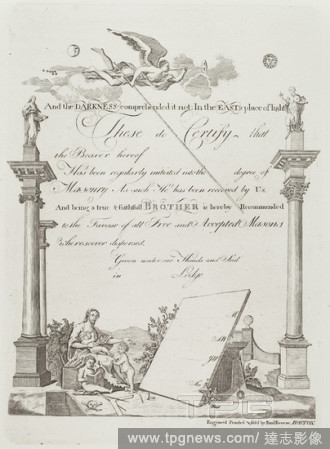 And the DARKNESS comprehended it not. In the EAST a place of light
These do Certify that
the Bearer hereof
Has been regularly initiated into the degree of
Masonry As such He has been received by Us
And being a true & faithfull BROTHER is hereby Recommended
to the Favour of all Free and Accepted Masons
wheresoever dispersed.
Given under our Hands and Seal
in Lodge
Engraved Printed & Sold by Paul Revere, BOSTON
TPG
www.tpgnews.com/ 達志影像